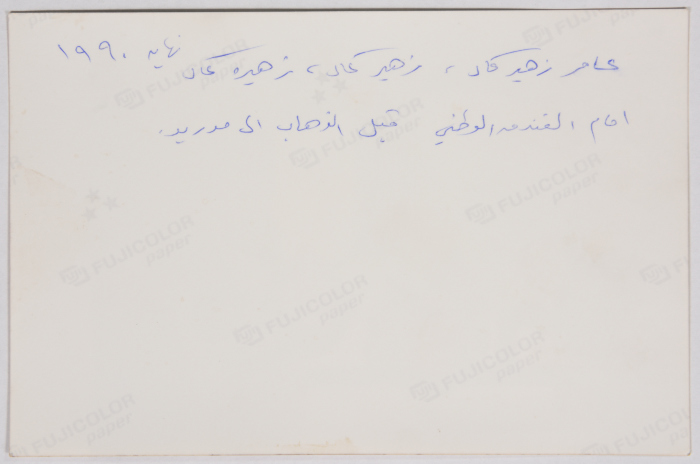 عامر زهير كمال ، زهير كمال ، زهيرة كمال نهاية ١٩٩٠
امام الفندق الوطني قبل الذهاب الى مدريد.
FUJICOLOR paper
FUJICOLOR paper
FUJICOLOR paper
FUJICOLOR paper
FUJICOLOR paper
FUJICOLOR paper
FUJICOLOR paper
FUJICOLOR paper